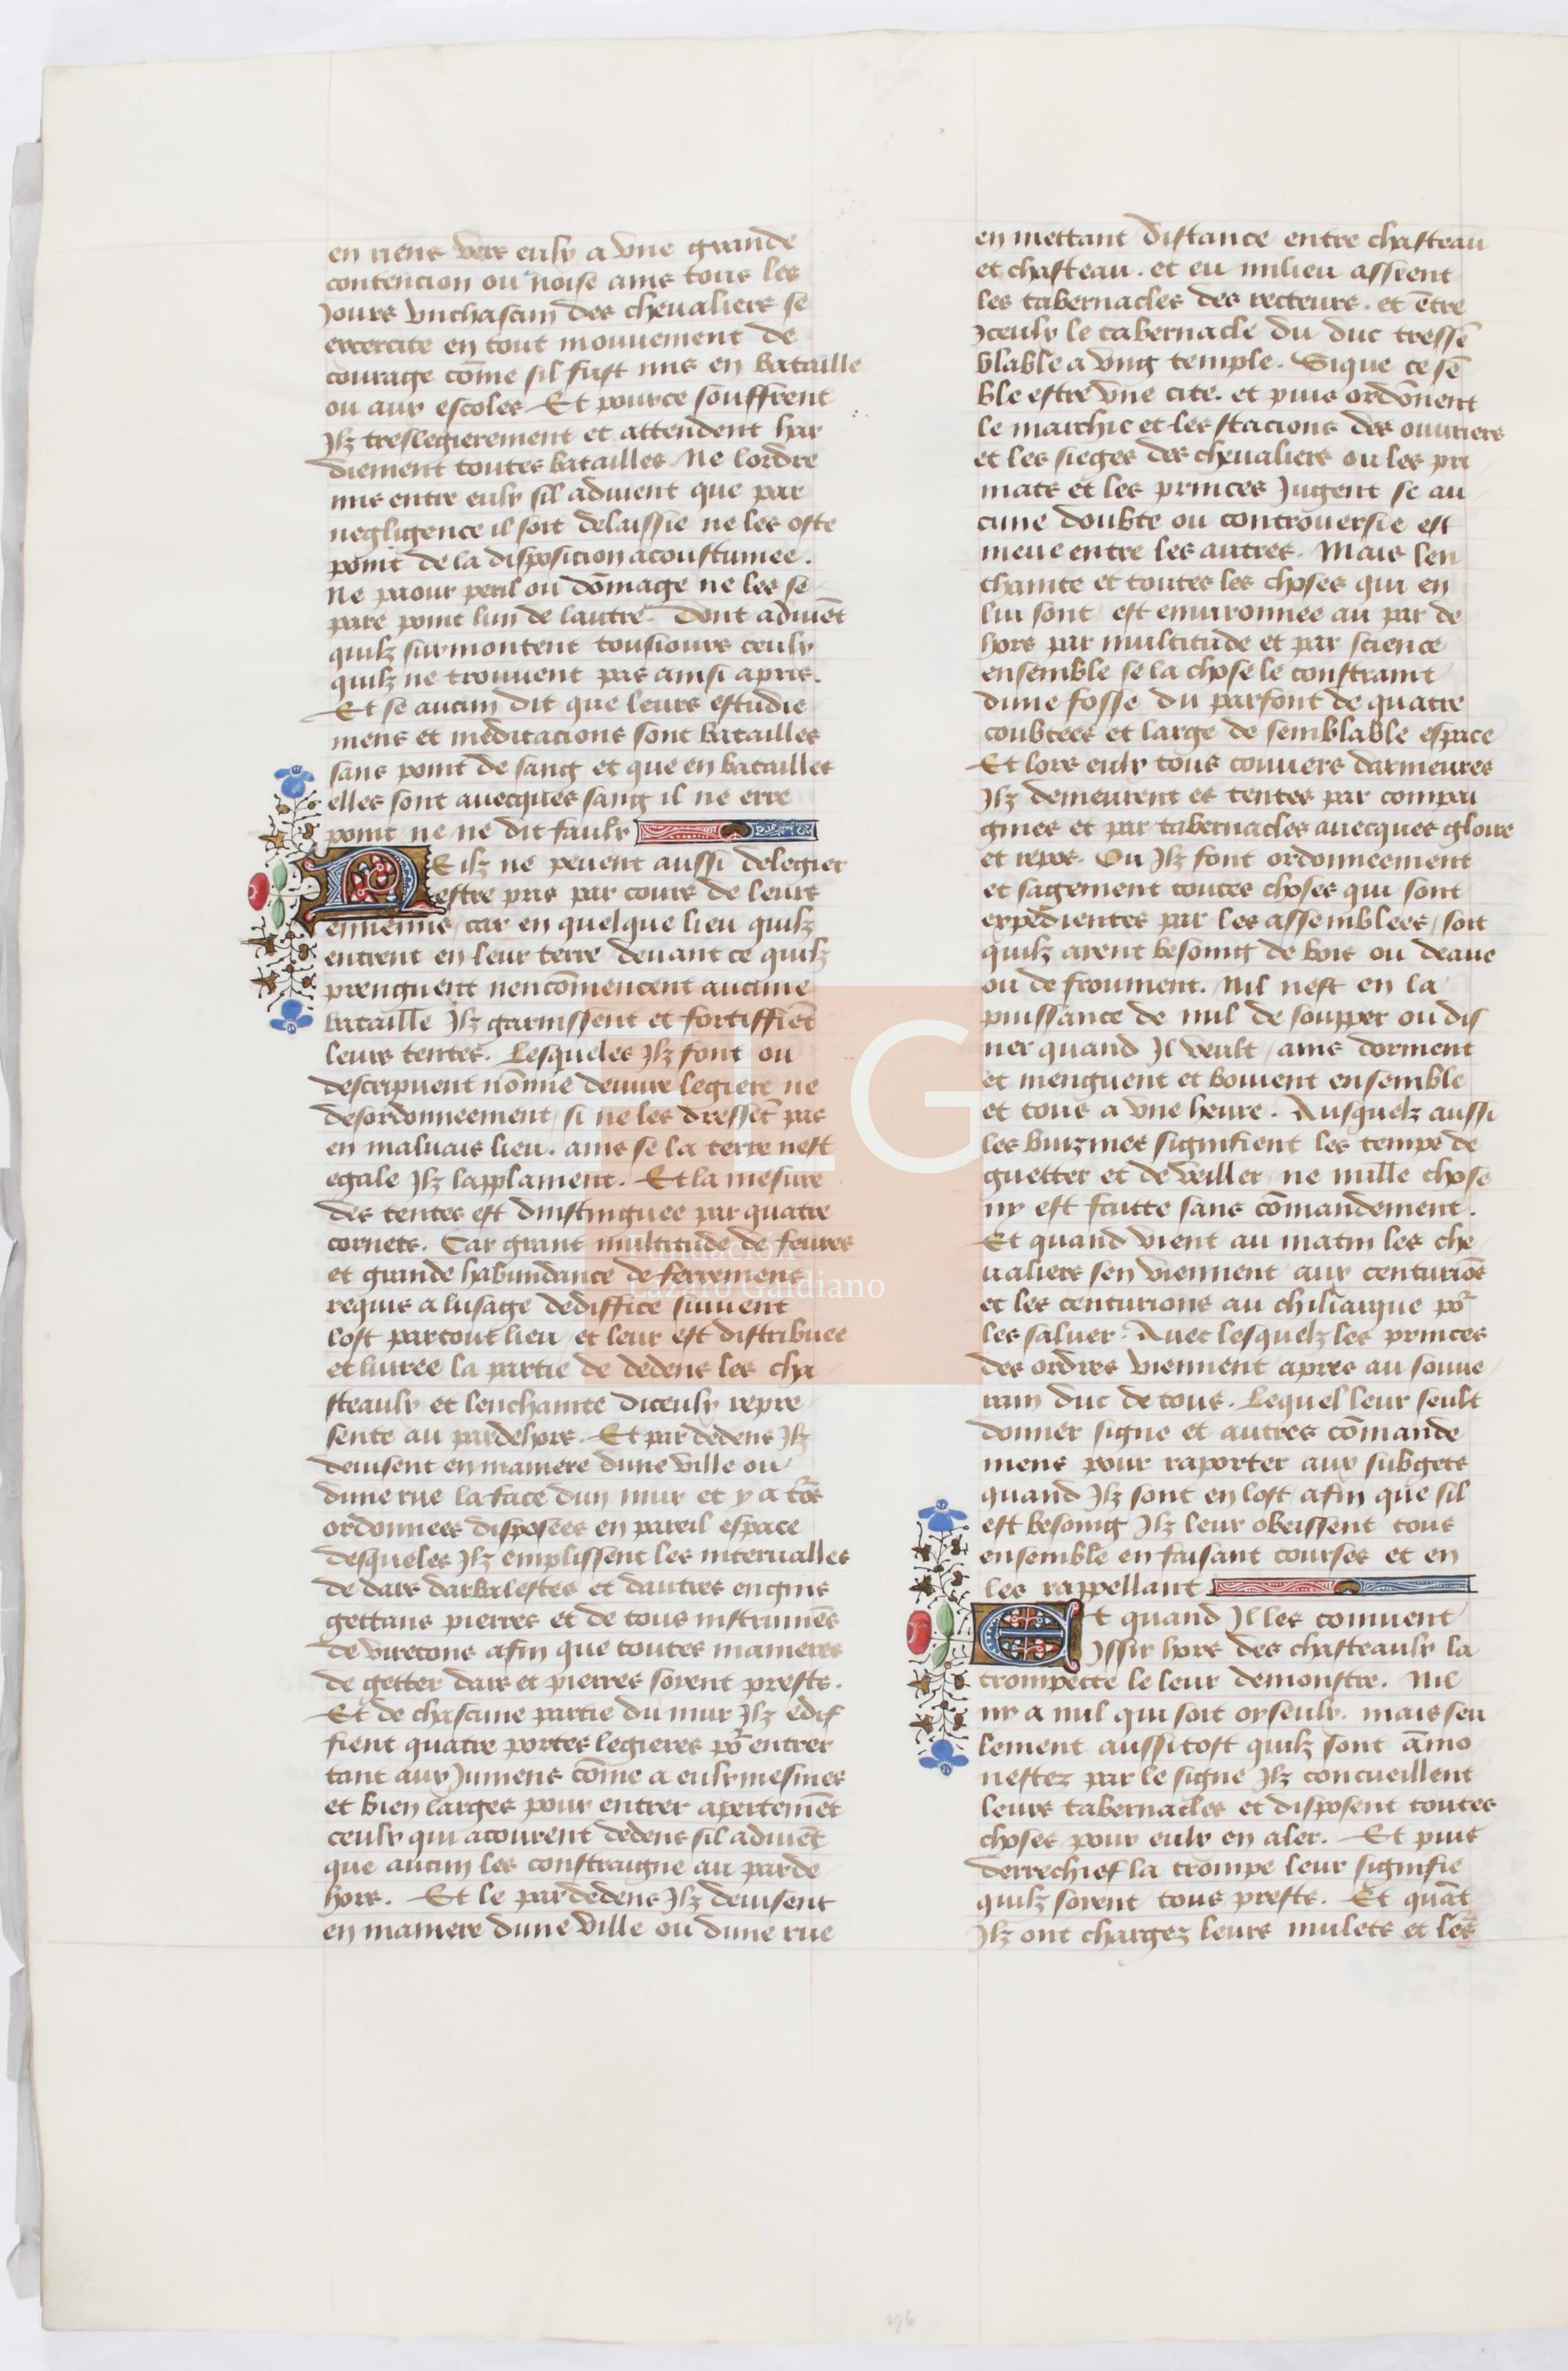 en riens vers eulx a vne grande
contencion ou noise ains tous les
Jours vnchascun des cheualiers se
excercite en tout mouuement de
courage cōme sil fust mis en bataille
ou aux escoles Et pource seuffrent
Jlz treslegierement et attendent har
diement toutes batailles. Ne lordre
mis entre eulx sil aduient que par
negligence il soit delaissie ne les oste
point de la disposicion acoustumee.
Ne paour peril ou dōmage ne les se
pare point lun de lautre. Dont aduiēt
quilz surmontent tousiours ceulx
quilz ne trouuent pas ainsi apris.
Et se aucun dit que leurs estudie
mens et meditacions sont batailles
sans point de sang et que en batailles
elles sont auecques sang il ne erre
point ne ne dit faulx
Eilz ne peuent aussi delegier
estre pris par cours de leurs
ennemis, car en quelque lieu quilz
entrent en leur terre deuant ce quilz
prenguent nencōmencent aucune
bataille Jlz garnissent et fortiffiēt
leurs tentes. Lesqueles Jlz font ou
descripuent nōmie deuure legiere ne
desordonneement, si ne les dressēt pas
en maluais lieu. ains se la terre nest
egale Jlz lapplanient. Et la mesure
des tentes est distinguee par quatre
cornets. Car grant multitude de feures
et grande habundance de ferremens
requis a lusage dediffice suiuent
lost partout lieu, et leur est distribuee
et liuree la partie de dedens les cha
steaulx et lenchainte diceulx repre
sente au pardehors. Et par dedens Jlz
deuisent en maniere dune ville ou
dune rue la face dun mur et y a tōrs
ordonnees disposees en pareil espace
desqueles Jlz emplissent les interualles
de dars darbalestes et dautres engins
gettans pierres et de tous instrumēs
de viretons afin que toutes manieres
de getter dars et pierres soyent prests.
Et de chascune partie du mur Jlz edif
fient quatre portes legieres pōr entrer
tant aux Jumens cōme a eulxmesmes
et bien larges pour entrer apertemēt
ceulx qui acourent dedens sil aduiēt
que aucun les constraigne au parde
hors. Et le par dedens Jlz deuisent
en maniere dune ville ou dune rue
en mettant distance entre chasteau
et chasteau. et eu milieu assieent
les tabernacles des recteurs. et ētre
Jceulx le tabernacle du duc tressē
blable a vng temple. Sique ce sē
ble estre vne cite. et puis ordōnent
le marchie et les stacions des ouuriers
et les sieges des cheualiers ou les pri
mats et les princes Jugent se au
cune doubte ou controuersie est
meue entre les autres. Mais len
chainte et toutes les choses qui en
lui sont, est enuironnee au par de
hors par multitude et par science
ensemble se la chose le constraint
dune fosse du parfont de quatre
coubtees et large de semblable espace
Et lors eulx tous couuers darmeures
Jlz demeurent es tentes par compai
gnies et par tabernacles auecques gloire
et repos. Ou Jlz font ordonneement
et sagement toutes choses qui sont
expedientes par les assemblees, soit
quilz aient besoing de bois ou deaue
ou de froument. Nil nest en la
puissance de nul de soupper ou dis
ner quand Jl veult, ains dorment
et menguent et boiuent ensemble
et tous a vne heure. Ausquelz aussi
les buizines signifient les temps de
guetter et de veiller, ne nulle chose
ny est faitte sans cōmandement.
Et quand vient au matin les che
ualiers sen viennent aux centuriōs
et les centurions au chiliarque pōr
les saluer. Auec lesquelz les princes
des ordres viennent apres au souue
rain duc de tous. Lequel leur seult
donner signe et autres cōmande
mens pour raporter aux subgets
quand Jlz sont en lost afin que sil
est besoing Jlz leur obeissent tous
ensemble en faisant courses et en
les rappellant
Et quand Jl les conuient
Jssir hors des chasteaulx la
trompette le leur demonstre. Nil
ny a nul qui soit oyseulx. mais seu
lement aussitost quilz sont āmo
nestez par le signe Jlz concueillent
leurs tabernacles et disposent toutes
choses pour eulx en aler. Et puis
derrechief la trompe leur signifie
quilz soyent tous prests. Et quāt
Jlz ont chargez leurs mulets et les
FLG
Fundación
Lázaro Galdiano
296